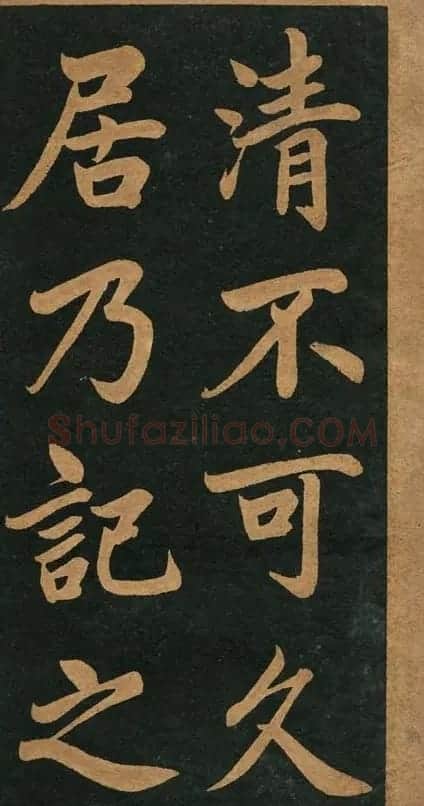 清不可久
居乃記之
Shufaziliao.COM